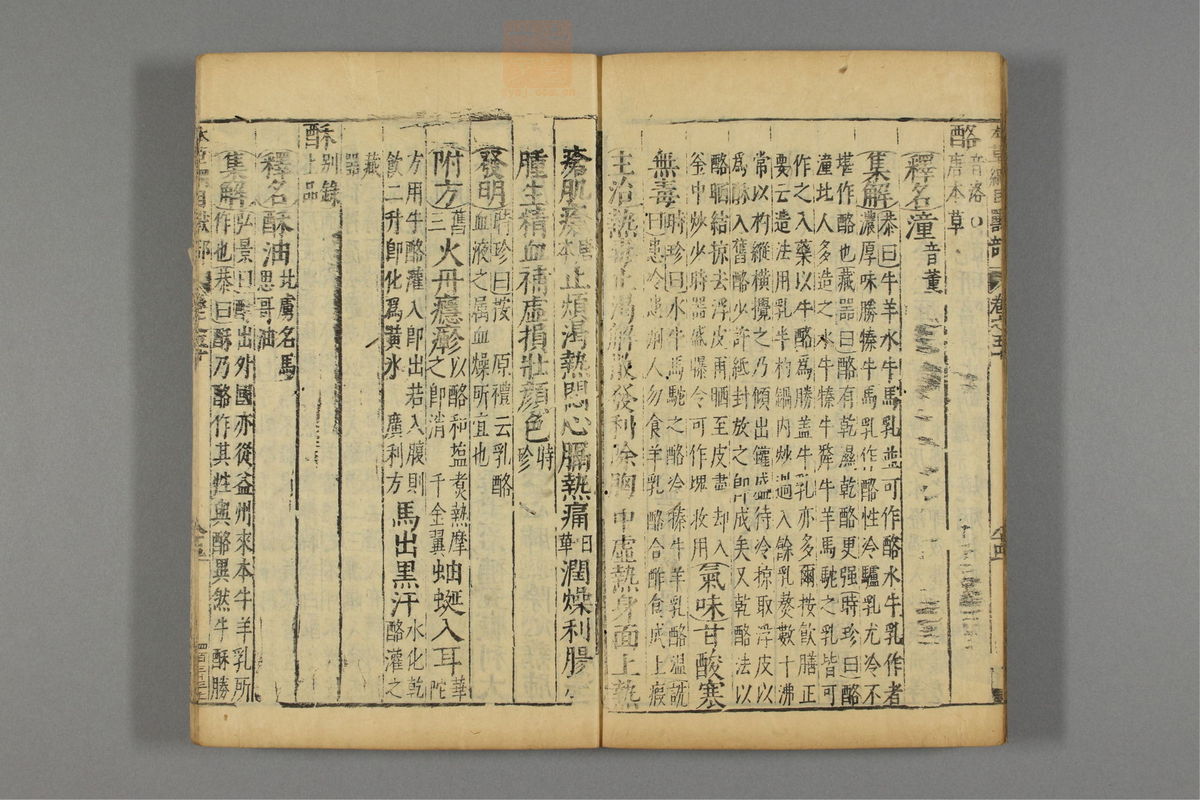 酪音洛○
唐本草
釋名湩音董
集解恭曰牛羊水牛馬乳並可作酪水牛乳作者
濃厚味勝犢牛馬乳作酪性冷驢乳尤冷不
堪作酪也藏器曰酪有乾濕乾酪更强時珍曰酪
湩北人多造之水牛㸬牛犛牛羊馬駝之乳皆可
作之入藥以牛酪爲勝盖牛乳亦多爾按飲膳正
要云造法用乳半杓鍋內炒過入餘乳熬數十沸
常以杓縱橫攪之乃傾出罐盛待冷掠取浮皮以
爲酥入舊酪少許紙封放之卽成矣又乾酪法以
酪晒結掠去浮皮再晒至皮盡却入
釜中炒少時器盛曝令可作塊收用氣味甘酸寒
無毒時珍曰水牛馬駝之酪冷㸬牛羊乳酪溫詵
曰患冷患痢人勿食羊乳酪合酢食成上瘕
主治熱毒止渴解散發利除胸中虛熱身面上熱
瘡肌瘡唐本止煩渴熱悶心膈熱痛日華潤燥利腸
腫生精血補虛損壯顏色時珍
發明時珍曰按 原禮云乳酪
血液之属血燥所宜也
附方舊三火丹癮疹以酪和塩煮熱摩之卽消千金翼蚰蜒入耳華陀
方用牛酪灌入卽出若入腹則
飲二升卽化爲黃水廣利方馬出黑汗水化乾酪灌之
藏器
酥別錄上品
釋名酥油北虜名馬思哥油
集解弘景曰酥出外國亦從益州來本牛羊乳所
作也恭曰酥乃酪作其性與酪異然牛酥勝